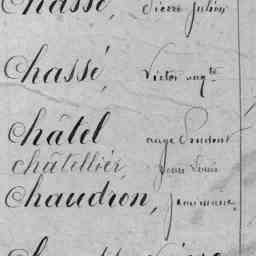 Chassé, Pierre Julien
Chassé, Victor Augte
Châtel ange Prudent
Châtellier, Jean Louis
Chaudron,